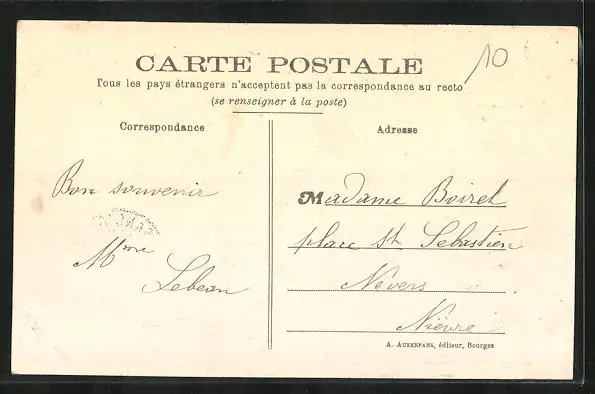 10
CARTE POSTALE
Tous les pays étrangers n'acceptent pas la correspondance au recto
(se renseigner à la poste)
Correspondance
Bon souvenir
Mme
Lebeau
Adresse
Madame Boiret
place St Sebastien
Nevers
Nièvre
A. AUXENFANS, éditeur, Bourges